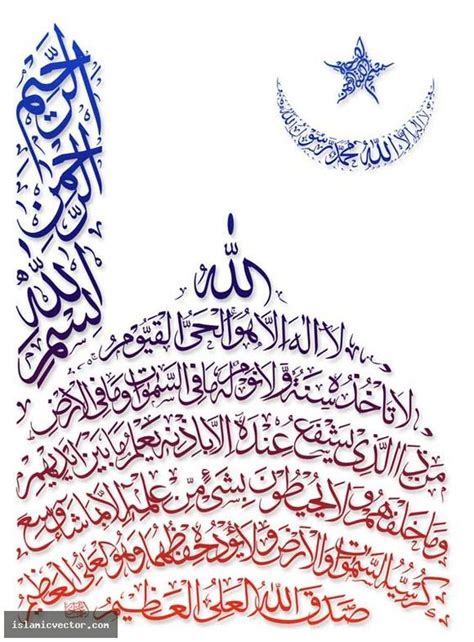 بسم الله الرحمن الرحيم
لا اله الا الله محمد رسول الله
الله
لا اله الا هو الحي القيوم
لا تاخذه سنة ولا نوم له ما في السموت وما في الارض
من ذا الذي يشفع عنده الا باذنه يعلم ما بين ايديهم
وما خلفهم ولا يحيطون بشيء من علمه الا بما شاء وسع
كرسيه السموت والارض ولا يؤده حفظهما وهو العلي العظيم
صدق الله العلي العظيم
islamicvector.com